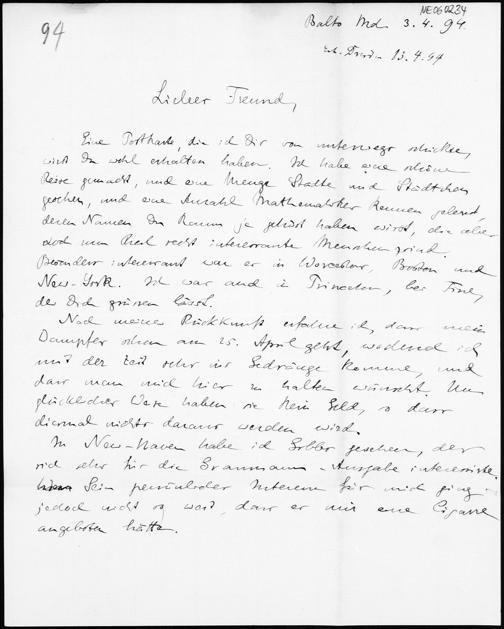 NE060234
94
Balto Md. 3.4.94.
erh. Dresden 13.4.94
Lieber Freund,
Eine Postkarte, die ich Dir von unterwegs schickte,
wirst Du wohl erhalten haben. Ich habe eine schöne
Reise gemacht, und eine Menge Städte und Städtchen
gesehen, und eine Anzahl Mathematiker kennen gelernt,
deren Namen Du kaum je gehört haben wirst, die aber
doch zum Theil recht interessante Menschen sind.
Besonders interessant war es in Worcester, Boston und
New-York. Ich war auch in Princeton, bei Fine,
der Dich grüssen lässt.
Nach meiner Rückkunft erfahre ich, dass mein
Dampfer schon am 25. April geht, wodurch ich
mit der Zeit sehr ins Gedränge komme, und
dass man mich hier zu halten wünscht. Un
glücklicher Weise haben sie kein Geld, so dass
diesmal nichts daraus werden wird.
In New-Haven habe ich Gibbs gesehen, der
sich sehr für die Grassmann-Ausgabe interessirte.
Sein persönliches Interesse für mich ging
jedoch nicht so weit, dass er mir eine Cigarre
angeboten hätte.